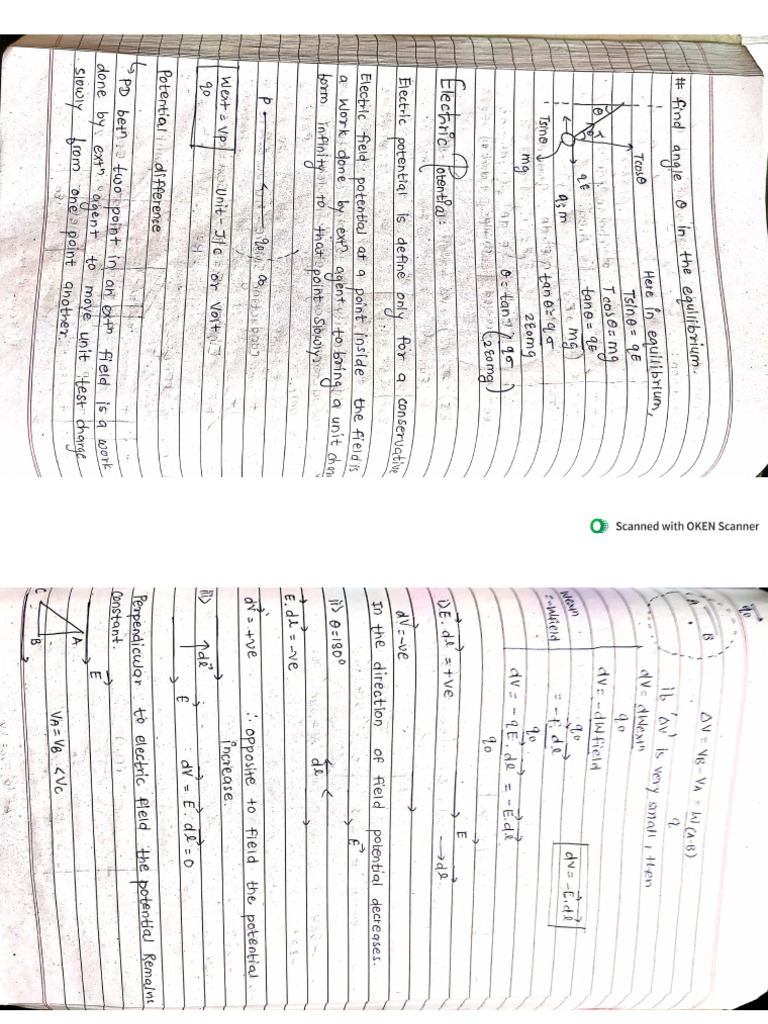 # find angle θ in the equilibrium.
Tcosθ
Here in equilibrium,
θ
Tsinθ = qE
qE
Tcosθ = mg
Tsinθ
q, m
tanθ = qE
mg
mg
tanθ = qσ
2ε0mg
θ = tan⁻¹ ( qσ
2ε0mg )
Electric Potential:
Electric potential is define only for a conservative
Electric field potential at a point inside the field is
a work done by extⁿ agent to bring a unit charge
form infinity to that point slowly.
P
q0
∞
West = Vp
q0
Unit - J/C or Volt
Potential difference
↳ PD betⁿ two point in an extⁿ field is a work
done by extⁿ agent to move unit test charge
slowly from one point another.
Scanned with OKEN Scanner
q0
A
B
ΔV = VB - VA = W(A-B)
q
if 'ΔV' is very small, then
dV = dWextⁿ
q0
dV = - dWfield
q0
= - E.dl
q0
dV = - qE.dl = - E.dl
q0
dV = - E.dl
i) E.dl = +ve
E
→ dl
dV = -ve
In the direction of field potential decreases.
ii) θ = 180°
E
dl
E.dl = -ve
dV = +ve ∴ opposite to field the potential
increase.
iii) ↑ dl
E
dV = E.dl = 0
Perpendicular to electric field the potential Remains
constant.
E
A
C
B
VA = VB < VC